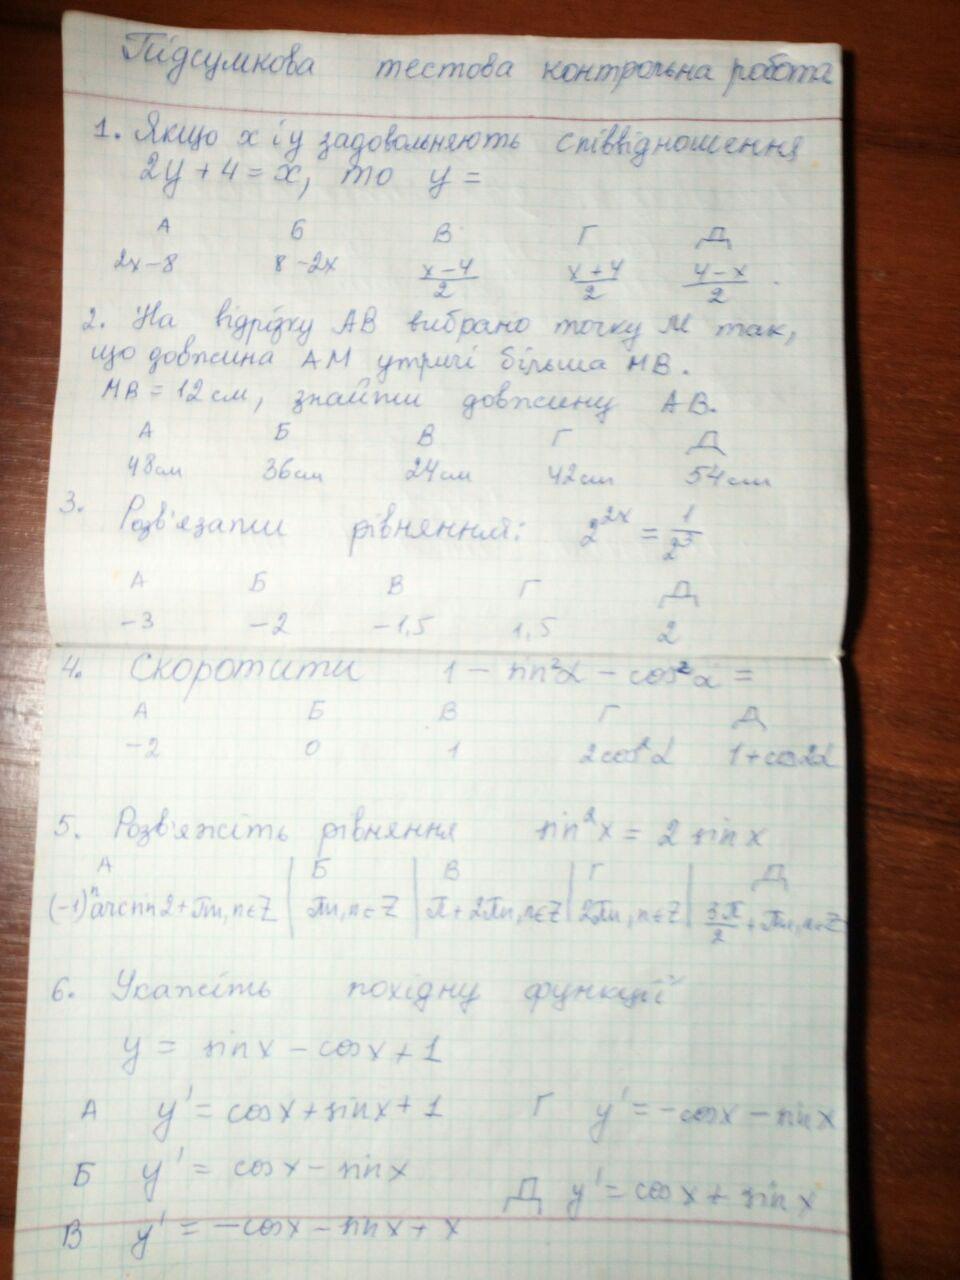 Підсумкова тестова контрольна робота
1. Якщо x і y задовольняють співвідношення
2y + 4 = x, то y =
А Б В Г Д
2x-8 8-2x (x-4)/2 (x+4)/2 (4-x)/2
2. На відрізку AB вибрано точку M так,
що довжина AM утричі більша MB.
MB = 12 см, знайти довжину AB.
А Б В Г Д
48см 36см 24см 42см 54см
3. Розв'язати рівняння: 2^{2x} = 1/2^3
А Б В Г Д
-3 -2 -1,5 1,5 2
4. Скоротити 1 - sin²α - cos²α =
А Б В Г Д
-2 0 1 2cos²α 1+cos2α
5. Розв'яжіть рівняння sin²x = 2 sin x
А | Б | В | Г | Д
(-1)ⁿarcsin2+πn, n∈Z | πn, n∈Z | π+2πn, n∈Z | 2πn, n∈Z | 3π/2 + πn, n∈Z
6. Укажіть похідну функції
y = sin x - cos x + 1
А y' = cos x + sin x + 1 Г y' = -cos x - sin x
Б y' = cos x - sin x
Д y' = cos x + sin x
В y' = -cos x - sin x + x